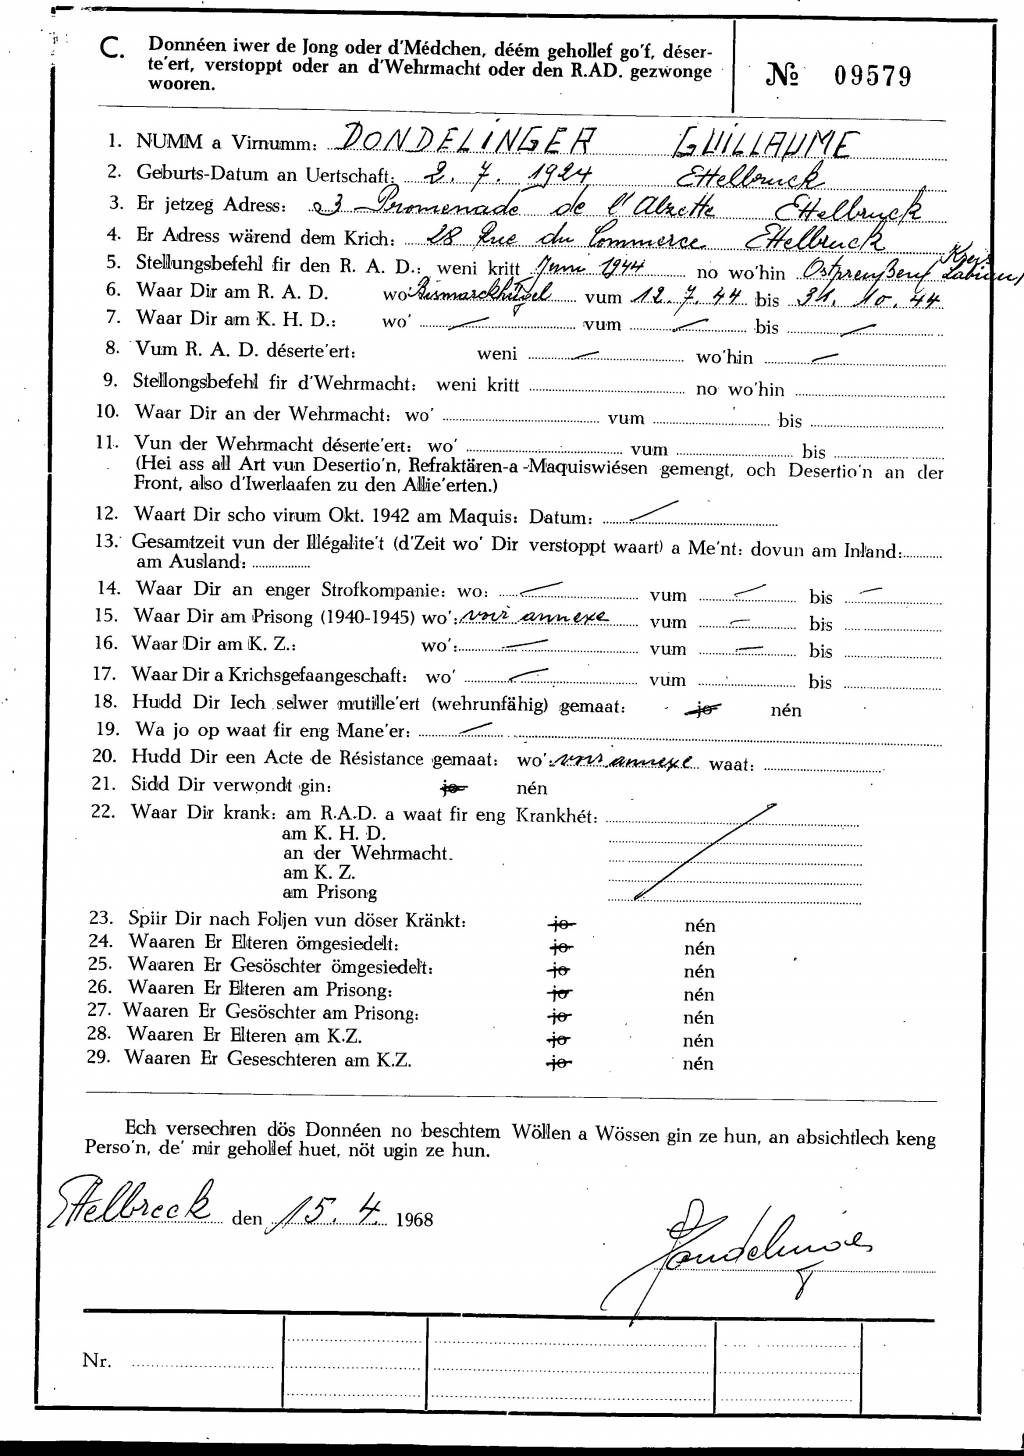 C. Donnéen iwer de Jong oder d'Médchen, déém gehollef go'f, déser-
te'ert, verstoppt oder an d'Wehrmacht oder den R.AD. gezwonge
wooren.
№ 09579
1. NUMM a Virnumm: DONDELINGER GUILLAUME
2. Geburts-Datum an Uertschaft: 2. 7. 1924 Ettelbruck
3. Er jetzeg Adress: 23 Promenade de l'Alzette Ettelbruck
4. Er Adress wärend dem Krich: 28 Rue du Commerce Ettelbruck
5. Stellungsbefehl fir den R. A. D.: weni kritt Juni 1944 no wo'hin Ostpreußen Kreis Labiau
6. Waar Dir am R. A. D. wo' Bismarckhügel vum 12. 7. 44 bis 31. 10. 44
7. Waar Dir am K. H. D.: wo' — vum — bis —
8. Vum R. A. D. déserte'ert: weni — wo'hin —
9. Stellongsbefehl fir d'Wehrmacht: weni kritt no wo'hin
10. Waar Dir an der Wehrmacht: wo' vum bis
11. Vun der Wehrmacht déserte'ert: wo' vum bis
(Hei ass all Art vun Desertio'n, Refraktären-a-Maquiswiésen gemengt, och Desertio'n an der
Front, also d'Iwerlaafen zu den Allie'erten.)
12. Waart Dir scho virum Okt. 1942 am Maquis: Datum: —
13. Gesamtzeit vun der Illégalite't (d'Zeit wo' Dir verstoppt waart) a Me'nt: dovun am Inland:
am Ausland:
14. Waar Dir an enger Strofkompanie: wo: — vum — bis —
15. Waar Dir am Prisong (1940-1945) wo': voir annexe vum — bis
16. Waar Dir am K. Z.: wo': — vum — bis
17. Waar Dir a Krichsgefaangeschaft: wo' — vum bis
18. Hudd Dir Iech selwer mutille'ert (wehrunfähig) gemaat: jo nén
19. Wa jo op waat fir eng Mane'er: —
20. Hudd Dir een Acte de Résistance gemaat: wo': voir annexe waat:
21. Sidd Dir verwondt gin: jo nén
22. Waar Dir krank: am R.A.D. a waat fir eng Krankhét:
am K. H. D.
an der Wehrmacht.
am K. Z.
am Prisong
23. Spiir Dir nach Foljen vun döser Kränkt: jo nén
24. Waaren Er Elteren ömgesiedelt: jo nén
25. Waaren Er Gesöschter ömgesiedelt: jo nén
26. Waaren Er Elteren am Prisong: jo nén
27. Waaren Er Gesöschter am Prisong: jo nén
28. Waaren Er Elteren am K.Z. jo nén
29. Waaren Er Geseschteren am K.Z. jo nén
Ech versechren dös Donnéen no beschtem Wöllen a Wössen gin ze hun, an absichtlech keng
Perso'n, de' mir gehollef huet, nöt ugin ze hun.
Ettelbreck den 15. 4. 1968
Dondelinger
Nr.